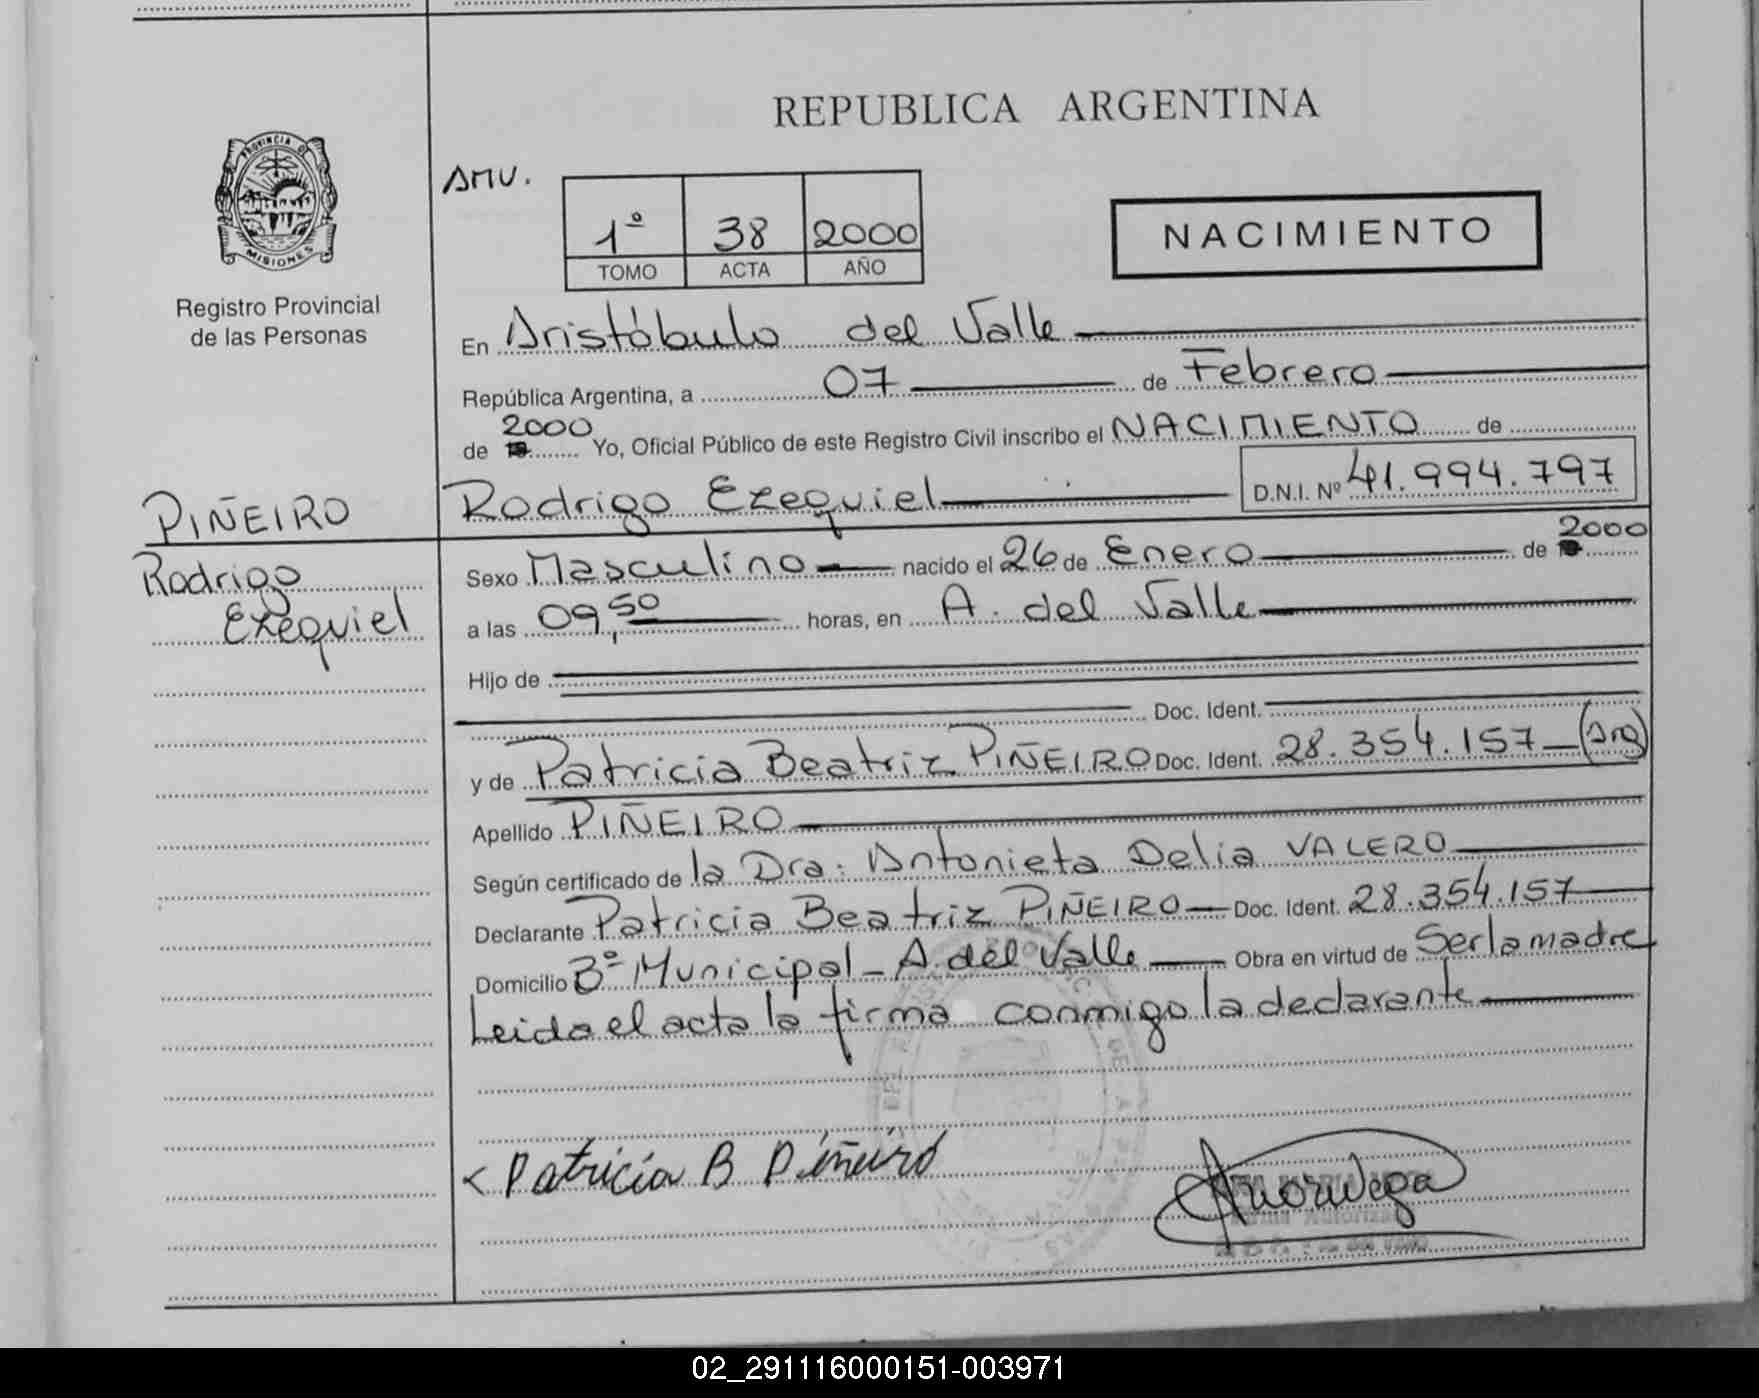 REPUBLICA ARGENTINA
PROVINCIA DE
MISIONES
Registro Provincial
de las Personas
AMV.
1º 38 2000
TOMO ACTA AÑO
NACIMIENTO
En Aristóbulo del Valle
República Argentina, a 07 de Febrero
de 2000 Yo, Oficial Público de este Registro Civil inscribo el NACIMIENTO de
PIÑEIRO
Rodrigo Ezequiel D.N.I. Nº 41.994.797
Rodrigo
Ezequiel
Sexo Masculino nacido el 26 de Enero de 2000
a las 09,50 horas, en A. del Valle
Hijo de
Doc. Ident.
y de Patricia Beatriz PIÑEIRO Doc. Ident. 28.354.157 (Arg)
Apellido PIÑEIRO
Según certificado de la Dra: Antonieta Delia VALERO
Declarante Patricia Beatriz PIÑEIRO Doc. Ident. 28.354.157
Domicilio Bº Municipal - A. del Valle Obra en virtud de Ser la madre
Leida el acta la firma conmigo la declarante
Patricia B Piñeiro
02_291116000151-003971